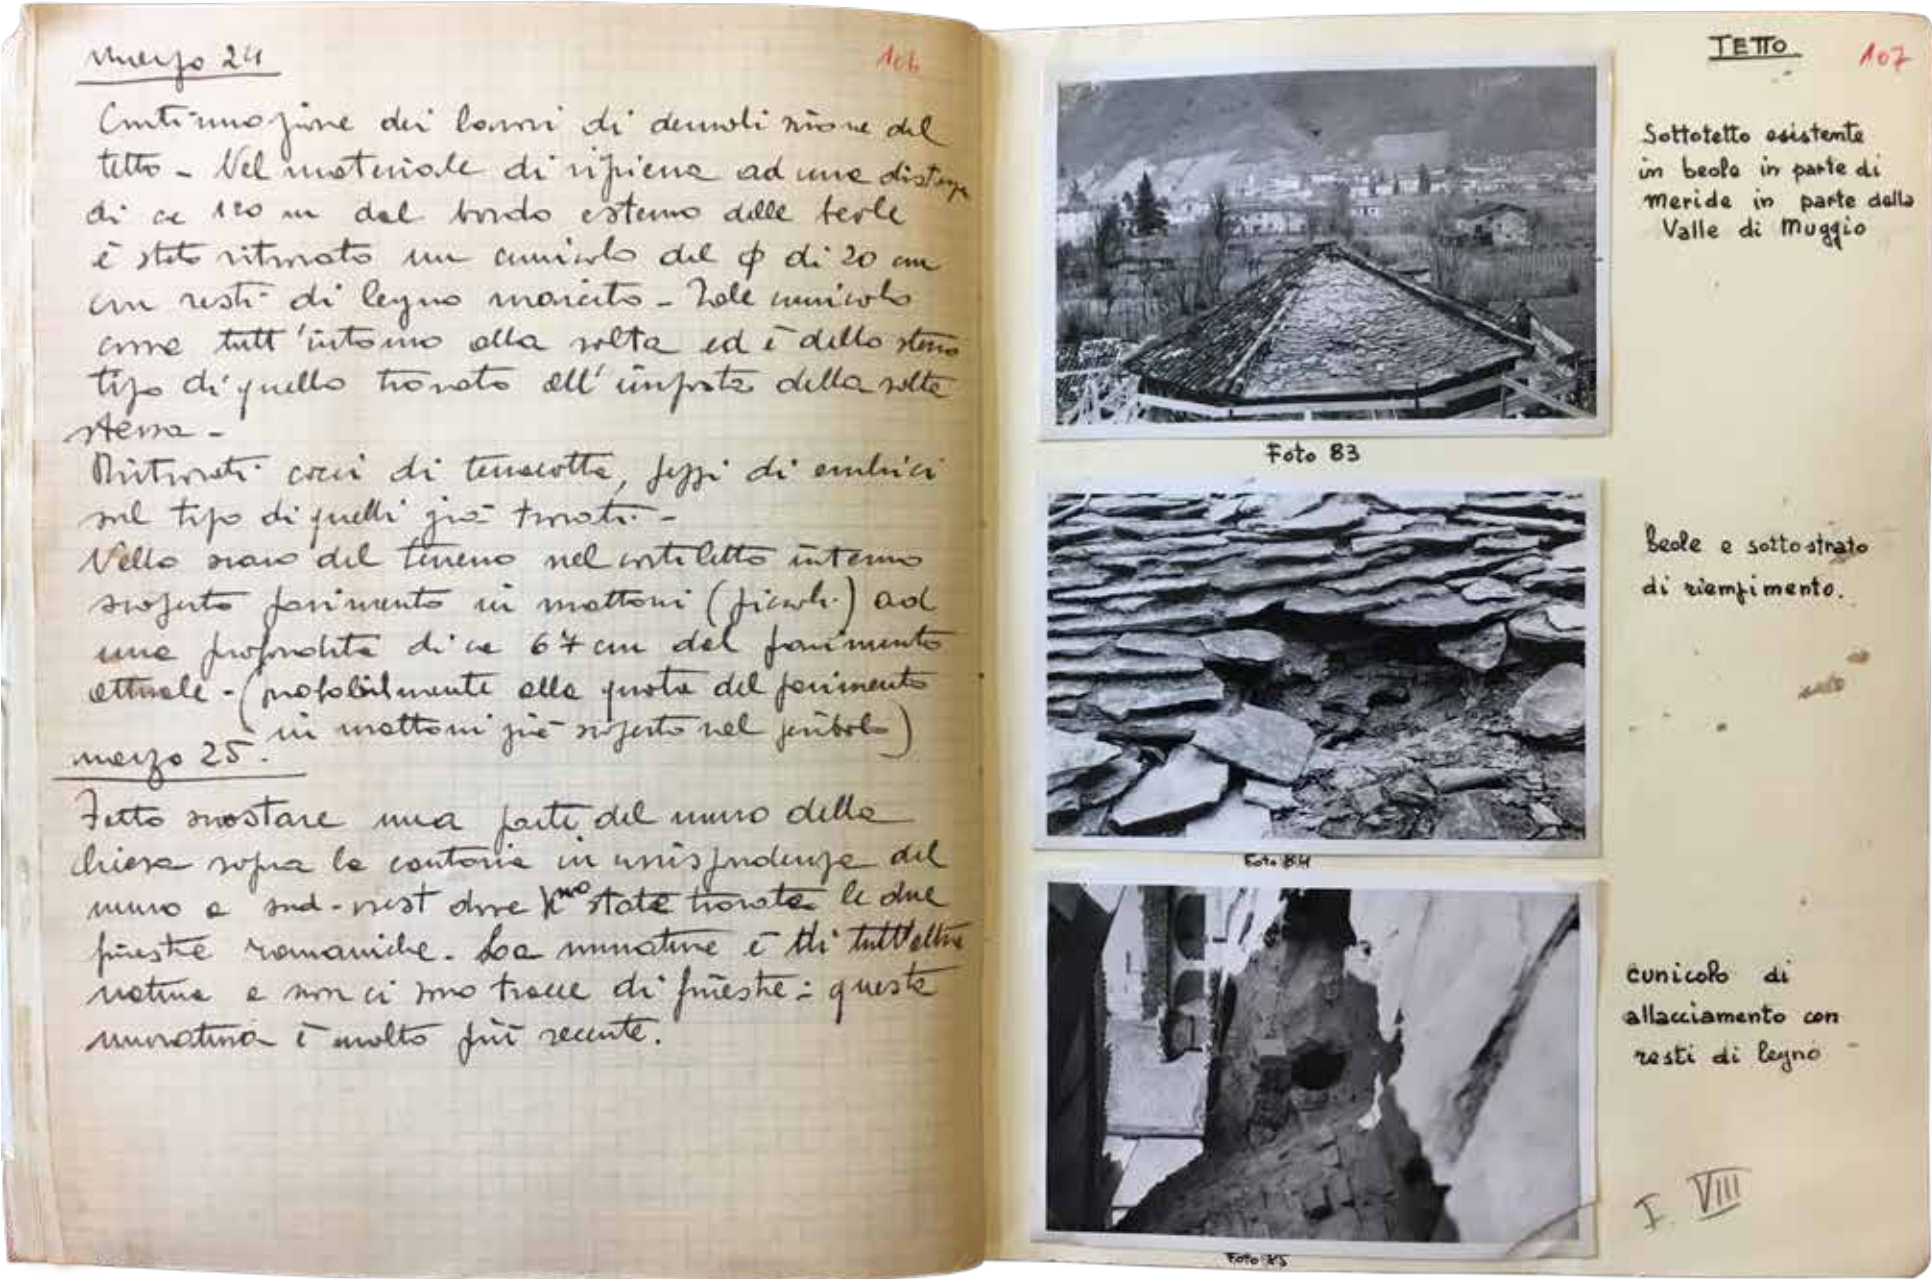 marzo 24
106
Continuazione dei lavori di demolizione del
tetto - Nel materiale di ripiena ad una distanza
di ca 120 m dal bordo esterno delle beole
è stato ritrovato un cunicolo del ϕ di 20 cm
con resti di legno marcito - Tale cunicolo
corre tutt'intorno alla volta ed è dello stesso
tipo di quello trovato all'imposta della volta
stessa -
Ritrovati cocci di terracotta, pezzi di embrici
sul tipo di quelli già trovati -
Nello scavo del terreno nel cortiletto interno
scoperto pavimento in mattoni (piccoli) ad
una profondità di ca 67 cm dal pavimento
attuale - (probabilmente alla quota del pavimento
in mattoni già scoperto nel peribolo)
marzo 25.
Fatto scrostare una parte del muro della
chiesa sopra la cantoria in corrispondenza del
muro a sud-ovest dove sono state trovate le due
finestre romaniche. La muratura è di tutt'altra
natura e non ci sono tracce di finestre: questa
muratura è molto più recente.
TETTO
107
Sottotetto esistente
in beole in parte di
Meride in parte della
Valle di Muggio
Foto 83
Beole e sottostrato
di riempimento.
Foto 84
cunicolo di
allacciamento con
resti di legno
I VIII
Foto 85